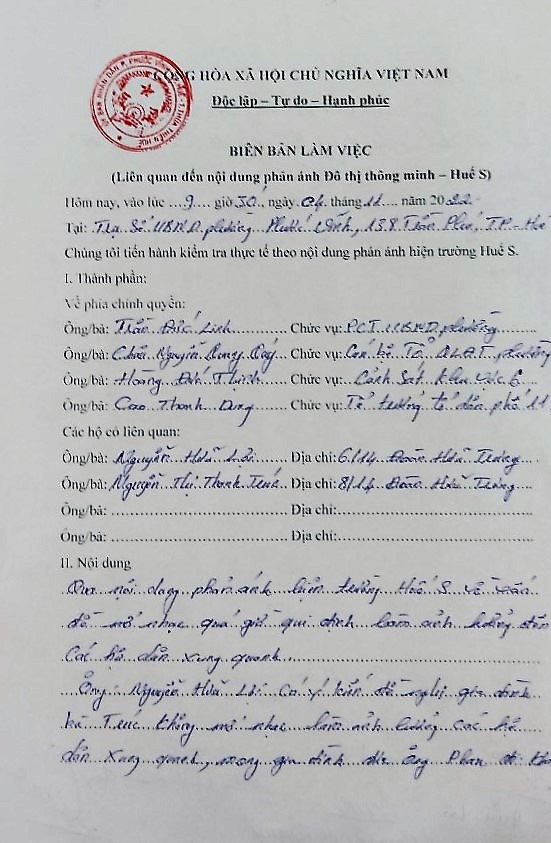 CỘNG HÒA XÃ HỘI CHỦ NGHĨA VIỆT NAM
Độc lập – Tự do – Hạnh phúc
BIÊN BẢN LÀM VIỆC
(Liên quan đến nội dung phản ánh Đô thị thông minh – Huế S)
Hôm nay, vào lúc ...9... giờ 30, ngày 04 tháng 11 năm 2022
Tại: Trụ Sở UBND phường Phước Vĩnh, 138 Trần Phú, TP - Huế
Chúng tôi tiến hành kiểm tra thực tế theo nội dung phản ánh hiện trường Huế S.
I. Thành phần:
Về phía chính quyền:
Ông/bà: Trần Đức Linh Chức vụ: PCT UBND phường
Ông/bà: Châu Nguyễn Chức vụ: Cán bộ Tổ phường
Ông/bà: Hoàng Thịnh Chức vụ: Cảnh Sát khu vực 6
Ông/bà: Cao Thanh Dung Chức vụ: Tổ trưởng tổ dân phố 11
Các hộ có liên quan:
Ông/bà: Nguyễn Hữu Lợi Địa chỉ: 6/14 Đoàn Hữu Trưng
Ông/bà: Nguyễn Thị Thanh Trúc Địa chỉ: 8/14 Đoàn Hữu Trưng
Ông/bà: Địa chỉ:
Ông/bà: Địa chỉ:
II. Nội dung
Qua nội dung phản ánh hiện trường Huế S về vấn
đề mở nhạc quá giờ qui định làm ảnh hưởng đến
Các hộ dân xung quanh
Ông Nguyễn Hữu Lợi Có ý kiến đề nghị gia đình
bà Trúc không mở nhạc làm ảnh hưởng các hộ
dân xung quanh, mong gia đình Ông Phan